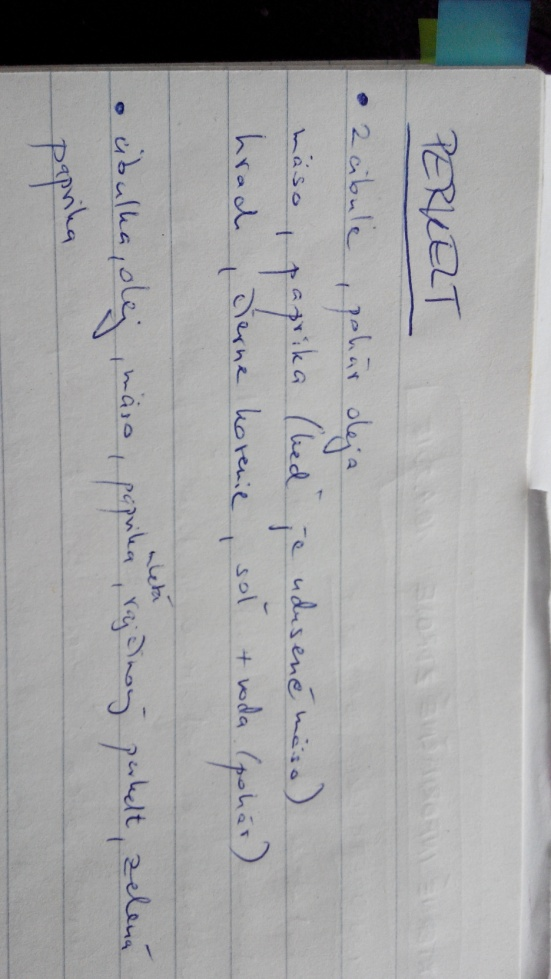 PERKELT
• 2 cibule, pohár oleja
mäso, paprika (keď je udusené mäso)
hrach, čierne korenie, soľ + voda (pohár)
• cibulka, olej, mäso, paprika mletá, rajčinový perkelt, zelená
paprika